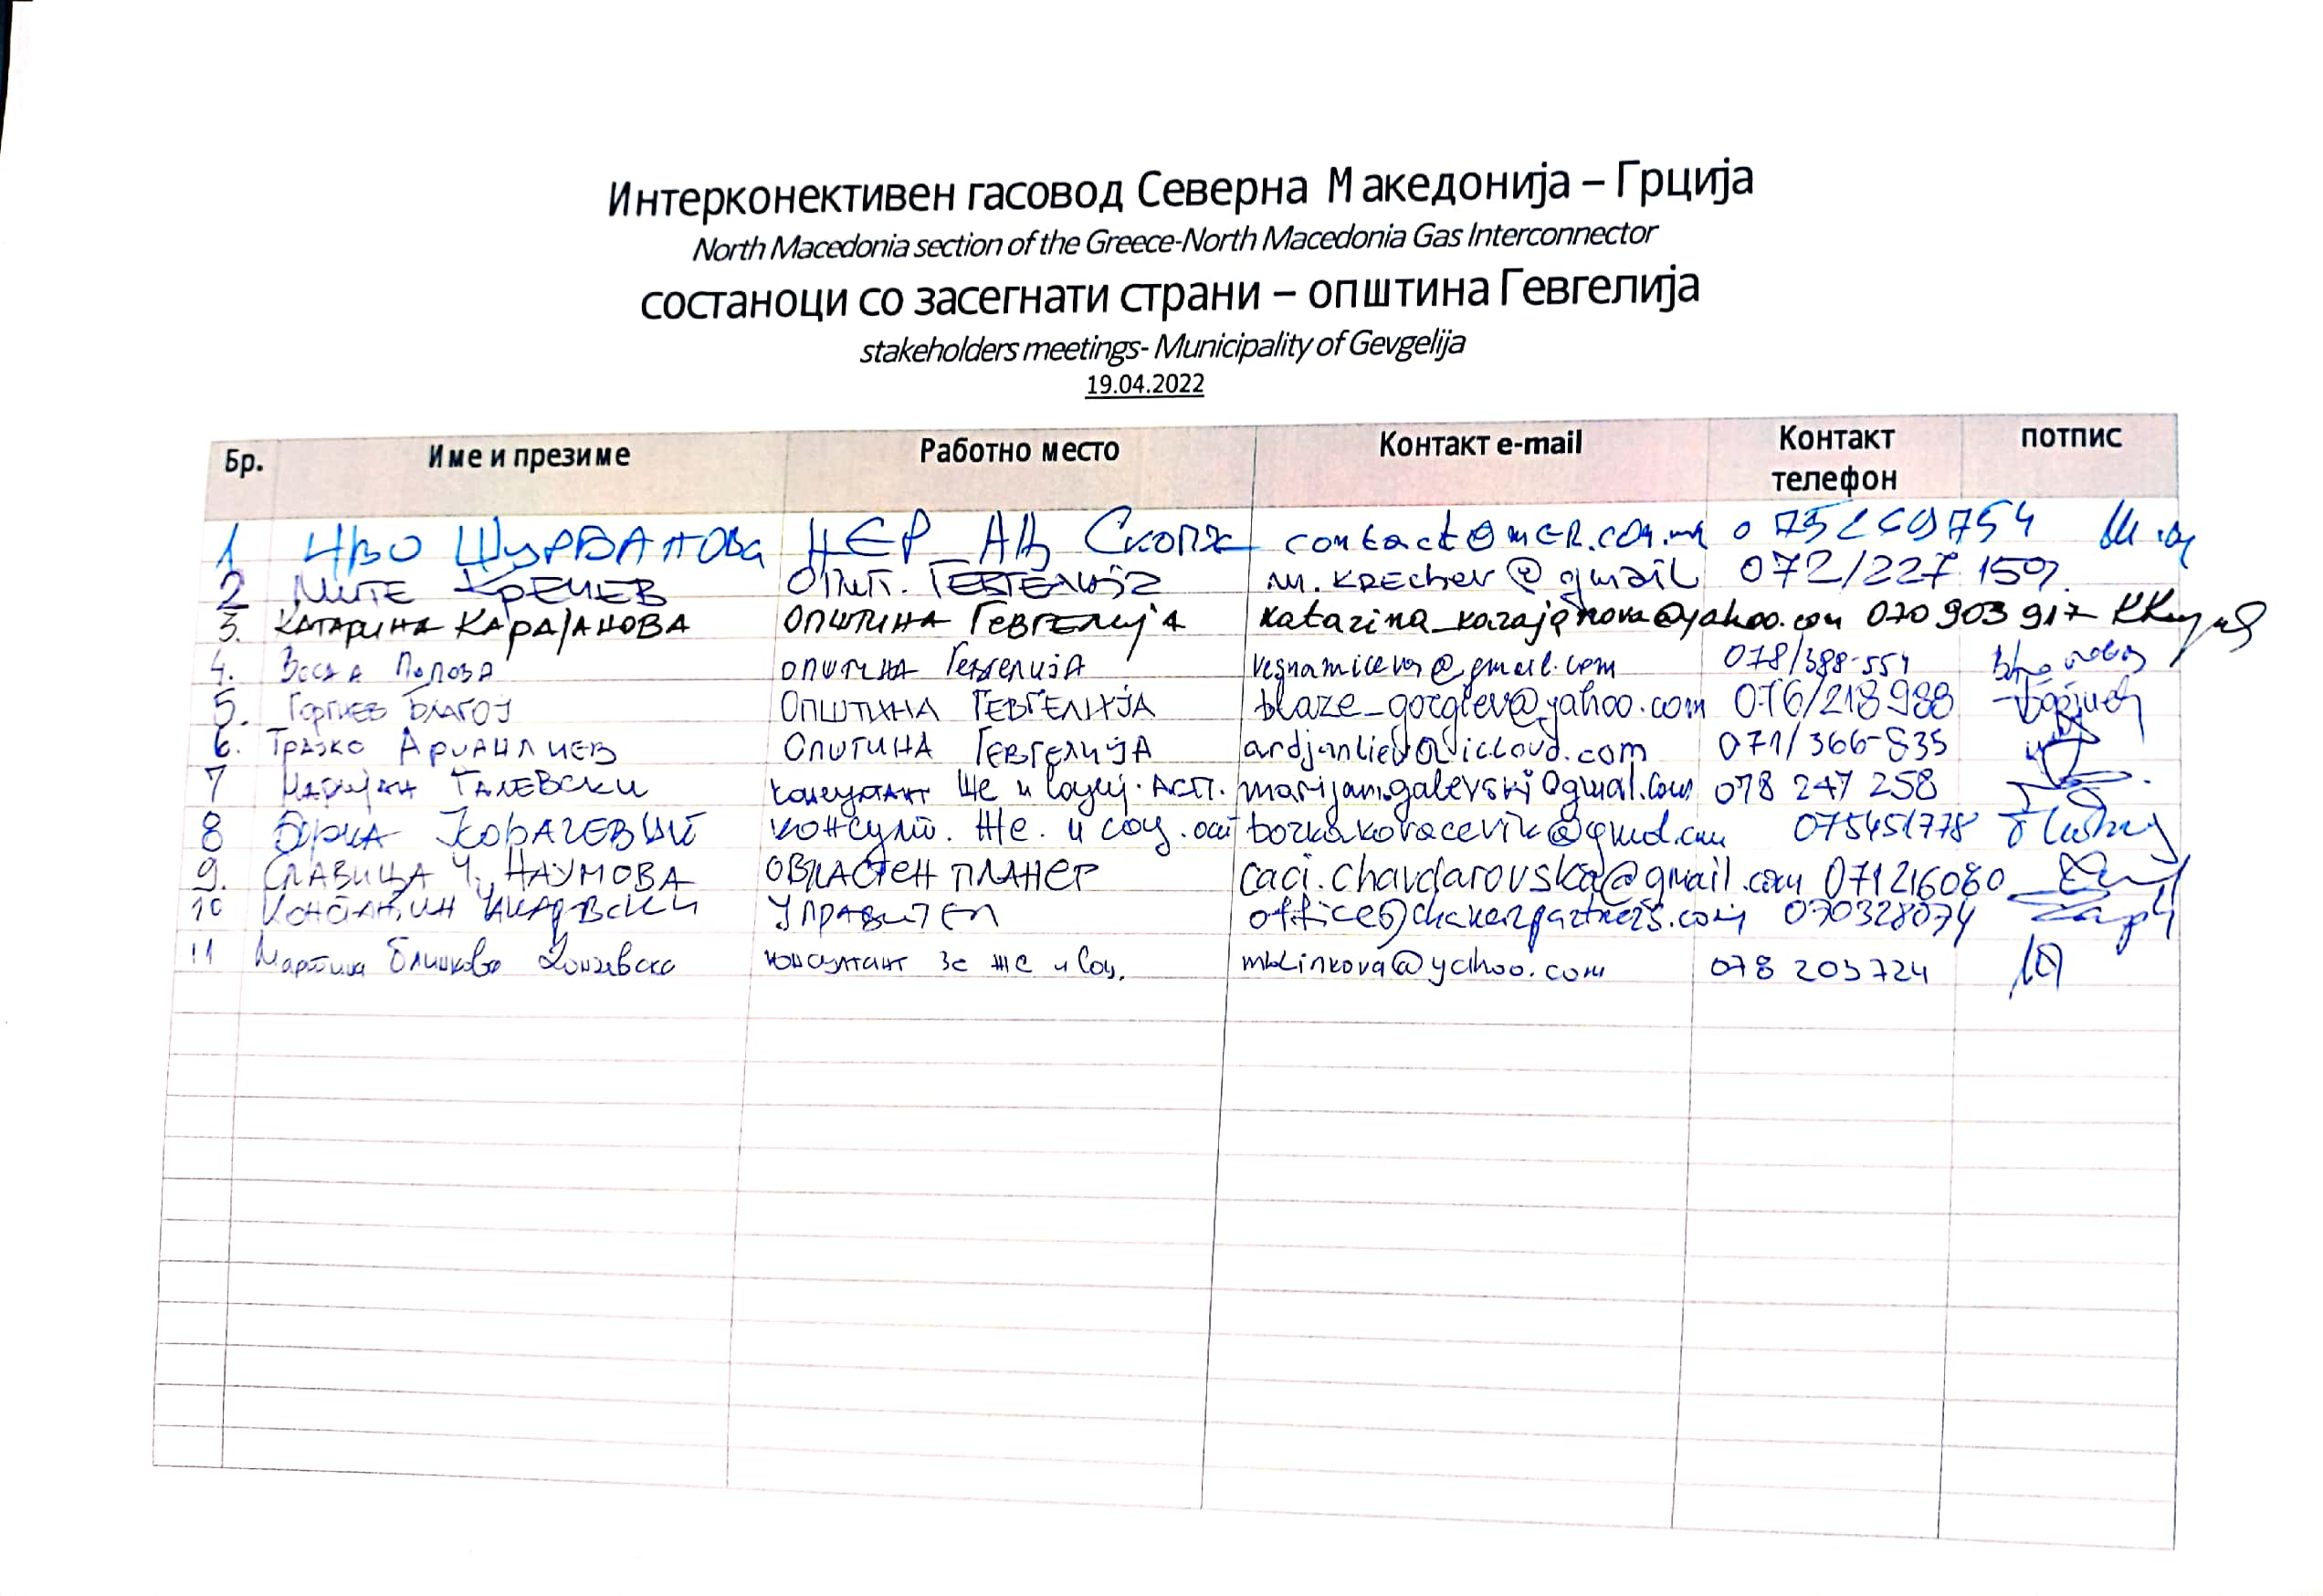 Интерконективен гасовод Северна Македонија – Грција
North Macedonia section of the Greece-North Macedonia Gas Interconnector
состаноци со засегнати страни – општина Гевгелија
stakeholders meetings- Municipality of Gevgelija
19.04.2022
Бр. Име и презиме Работно место Контакт e-mail Контакт телефон потпис
1 ИВО ШУРБАНОВА НЕР АД Скопје contact@mer.com.mk
2 МИТЕ КРЕЧЕВ ОПШТ. ГЕВГЕЛИЈА m.krechev@gmail 072/227 159
3. КАТАРИНА КАРАЈАНОВА ОПШТИНА ГЕВГЕЛИЈА katarina_karajanova@yahoo.com 070 903 917
4. Попова ОПШТИНА ГЕВГЕЛИЈА vesnamiceva@gmail.com 078/388-554
5. ГОРГИЕВ БЛАГОЈ ОПШТИНА ГЕВГЕЛИЈА blaze_gorgiev@yahoo.com 076/218988
6. ТРАЈКО АРЏАНЛИЕВ ОПШТИНА ГЕВГЕЛИЈА ardjanliev@icloud.com 071/366-835
7 МАРИЈАН ГАЛЕВСКИ консултант marijan.galevski@gmail.com 078 247 258
8 БОРКА КОВАЧЕВИЌ консулт. Же. и соц. 075451778
9. СЛАВИЦА Ч. НАУМОВА ОВЛАСТЕН ПЛАНЕР caci.chavdarovska@gmail.com 071216080
10 КОНСТАНТИН УПРАВИТЕЛ 070328074
11 Мартина Блинкова Дончевска консултант за же и соц. mblinkova@yahoo.com 078 203 724